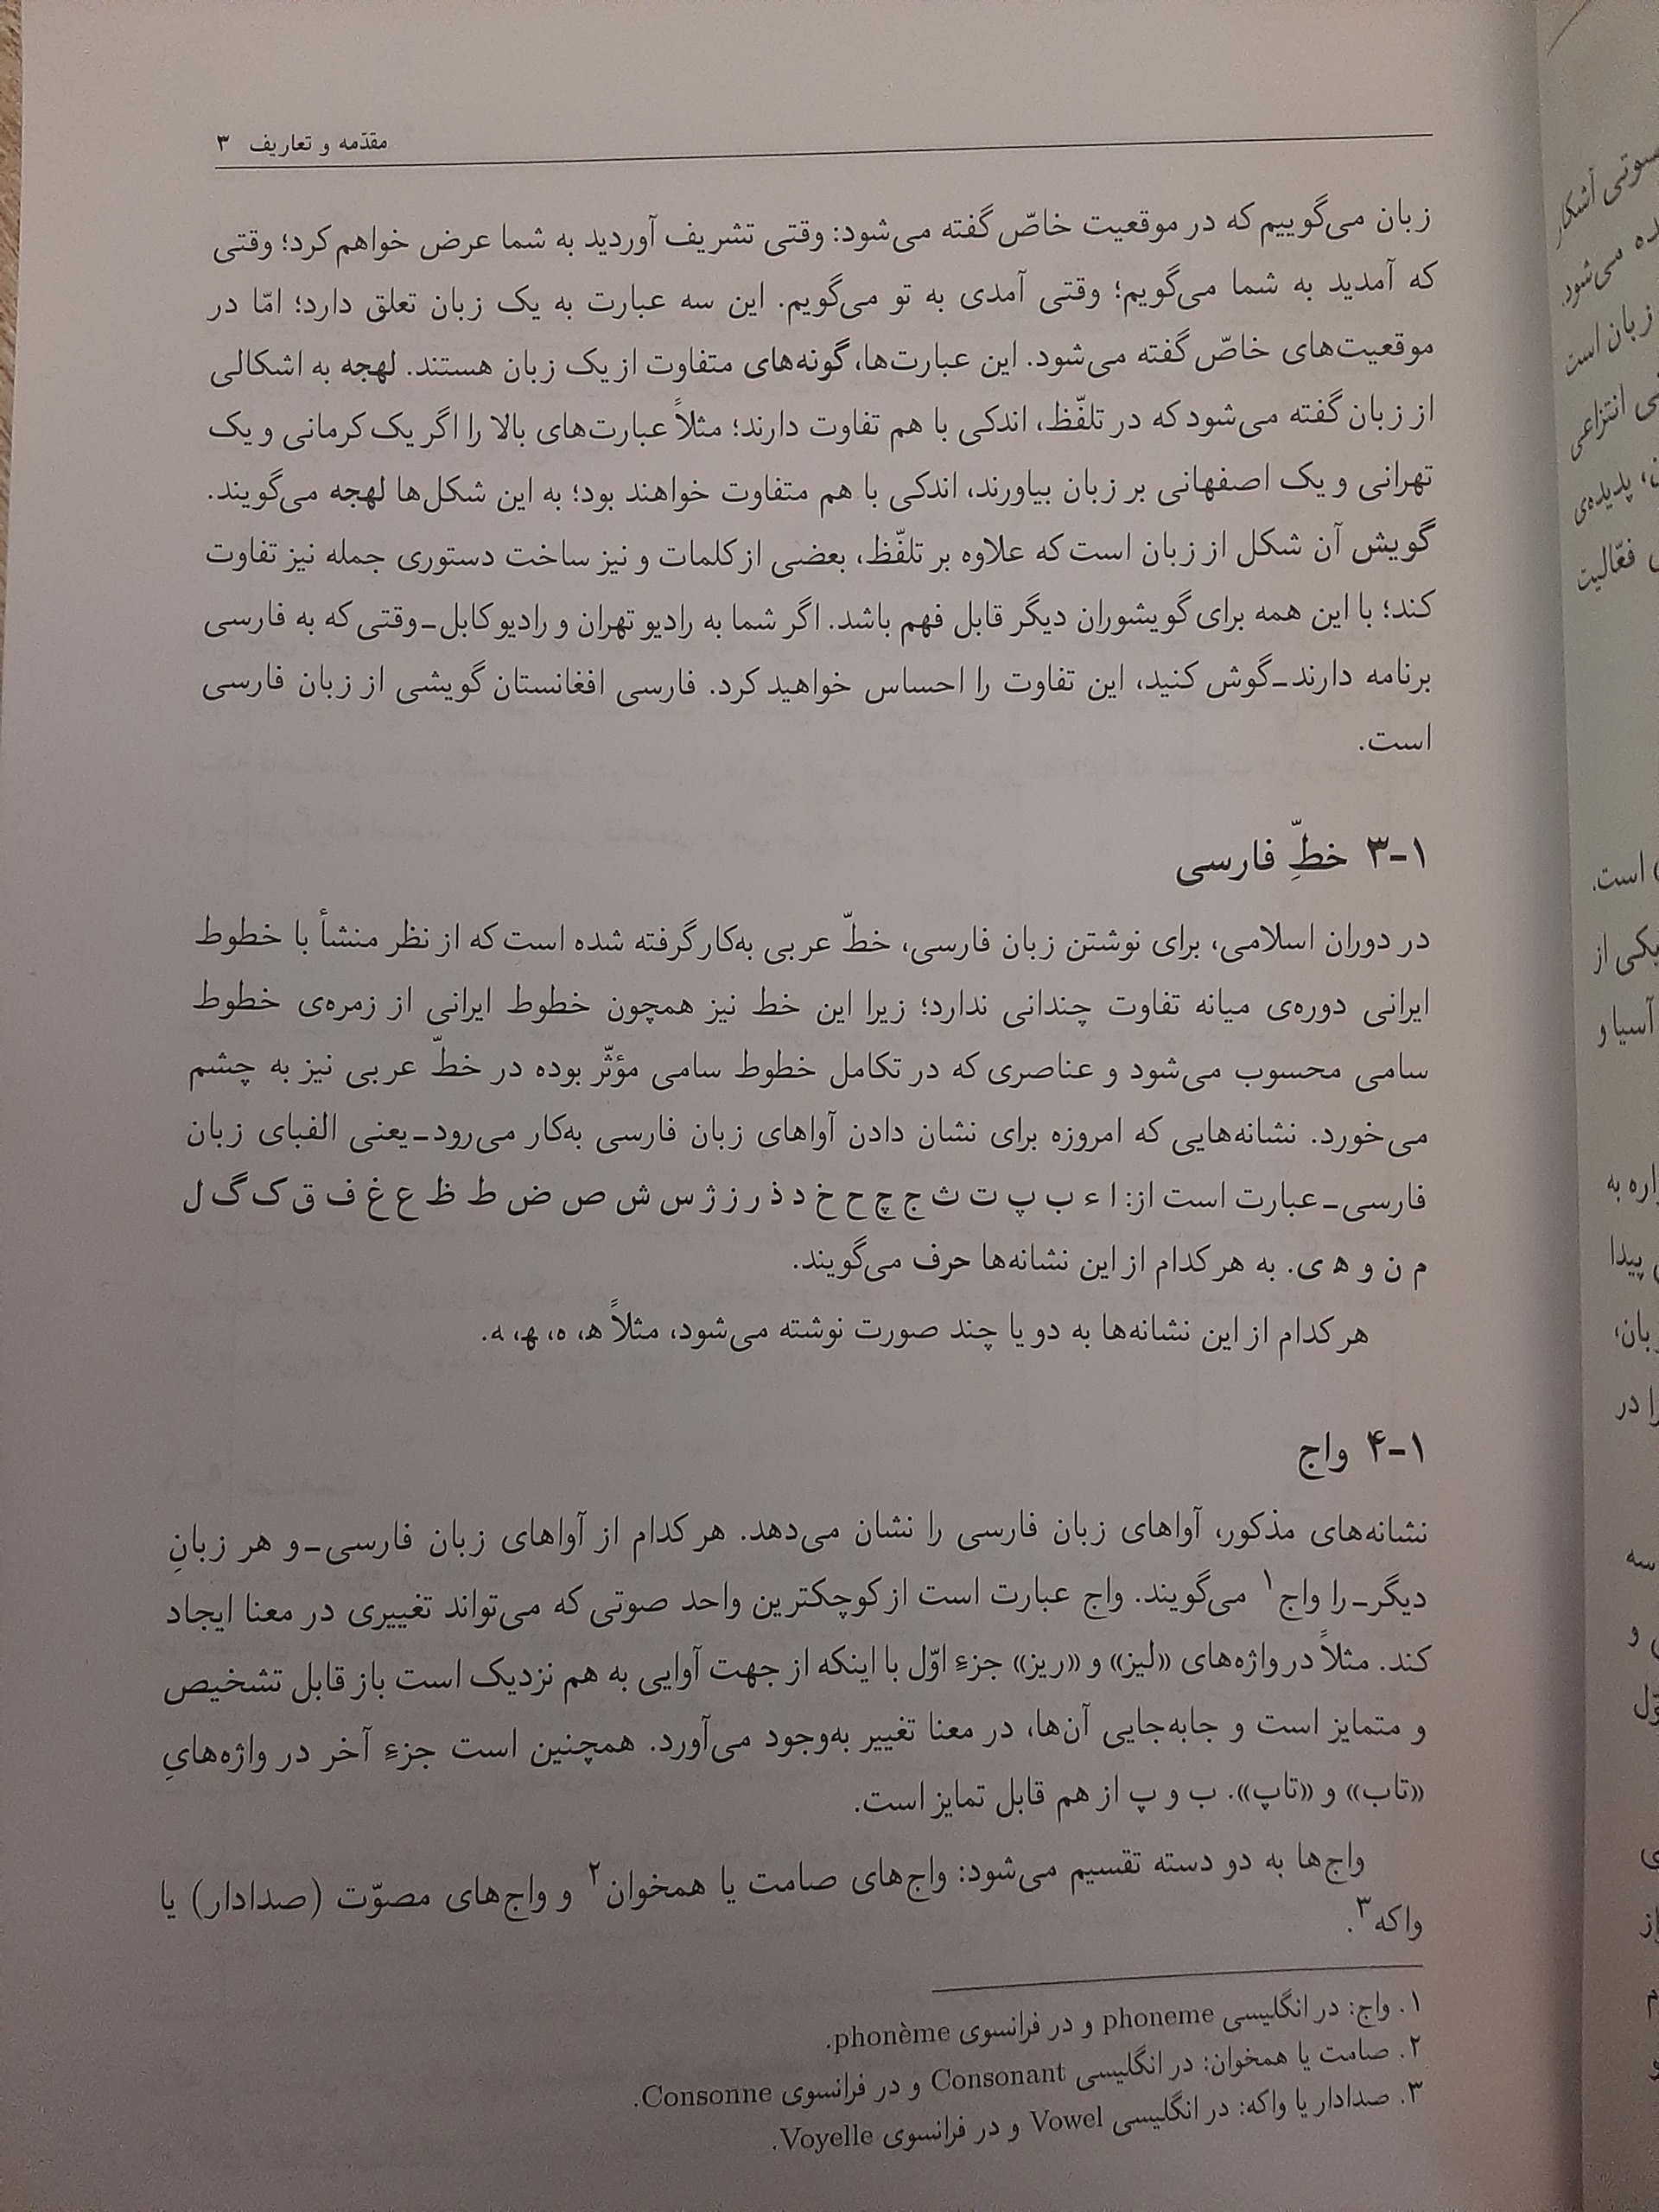 مقدّمه و تعاریف ۳
زبان می‌گوییم که در موقعیت خاصّ گفته می‌شود: وقتی تشریف آوردید به شما عرض خواهم کرد؛ وقتی
که آمدید به شما می‌گویم؛ وقتی آمدی به تو می‌گویم. این سه عبارت به یک زبان تعلق دارد؛ امّا در
موقعیت‌های خاصّ گفته می‌شود. این عبارت‌ها، گونه‌های متفاوت از یک زبان هستند. لهجه به اشکالی
از زبان گفته می‌شود که در تلفّظ، اندکی با هم تفاوت دارند؛ مثلاً عبارت‌های بالا را اگر یک کرمانی و یک
تهرانی و یک اصفهانی بر زبان بیاورند، اندکی با هم متفاوت خواهند بود؛ به این شکل‌ها لهجه می‌گویند.
گویش آن شکل از زبان است که علاوه بر تلفّظ، بعضی از کلمات و نیز ساخت دستوری جمله نیز تفاوت
کند؛ با این همه برای گویشوران دیگر قابل فهم باشد. اگر شما به رادیو تهران و رادیو کابل ـ وقتی که به فارسی
برنامه دارند ـ گوش کنید، این تفاوت را احساس خواهید کرد. فارسی افغانستان گویشی از زبان فارسی
است.
۱-۳ خطِّ فارسی
در دوران اسلامی، برای نوشتن زبان فارسی، خطّ عربی به‌کار گرفته شده است که از نظر منشأ با خطوط
ایرانی دوره‌ی میانه تفاوت چندانی ندارد؛ زیرا این خط نیز همچون خطوط ایرانی از زمره‌ی خطوط
سامی محسوب می‌شود و عناصری که در تکامل خطوط سامی مؤثّر بوده در خطّ عربی نیز به چشم
می‌خورد. نشانه‌هایی که امروزه برای نشان دادن آواهای زبان فارسی به‌کار می‌رود ـ یعنی الفبای زبان
فارسی ـ عبارت است از: ا ء ب پ ت ث ج چ ح خ د ذ ر ز ژ س ش ص ض ط ظ ع غ ف ق ک گ ل
م ن و ه ی. به هر کدام از این نشانه‌ها حرف می‌گویند.
هر کدام از این نشانه‌ها به دو یا چند صورت نوشته می‌شود، مثلاً هـ، ه، ـهـ، ـه.
۱-۴ واج
نشانه‌های مذکور، آواهای زبان فارسی را نشان می‌دهد. هر کدام از آواهای زبان فارسی ـ و هر زبانِ
دیگر ـ را واج۱ می‌گویند. واج عبارت است از کوچکترین واحد صوتی که می‌تواند تغییری در معنا ایجاد
کند. مثلاً در واژه‌های «لیز» و «ریز» جزءِ اوّل با اینکه از جهت آوایی به هم نزدیک است باز قابل تشخیص
و متمایز است و جابه‌جایی آن‌ها، در معنا تغییر به‌وجود می‌آورد. همچنین است جزءِ آخر در واژه‌هایِ
«تاب» و «تاپ». ب و پ از هم قابل تمایز است.
واج‌ها به دو دسته تقسیم می‌شود: واج‌های صامت یا همخوان۲ و واج‌های مصوّت (صدادار) یا
واکه۳.
۱. واج: در انگلیسی phoneme و در فرانسوی phonème.
۲. صامت یا همخوان: در انگلیسی Consonant و در فرانسوی Consonne.
۳. صدادار یا واکه: در انگلیسی Vowel و در فرانسوی Voyelle.